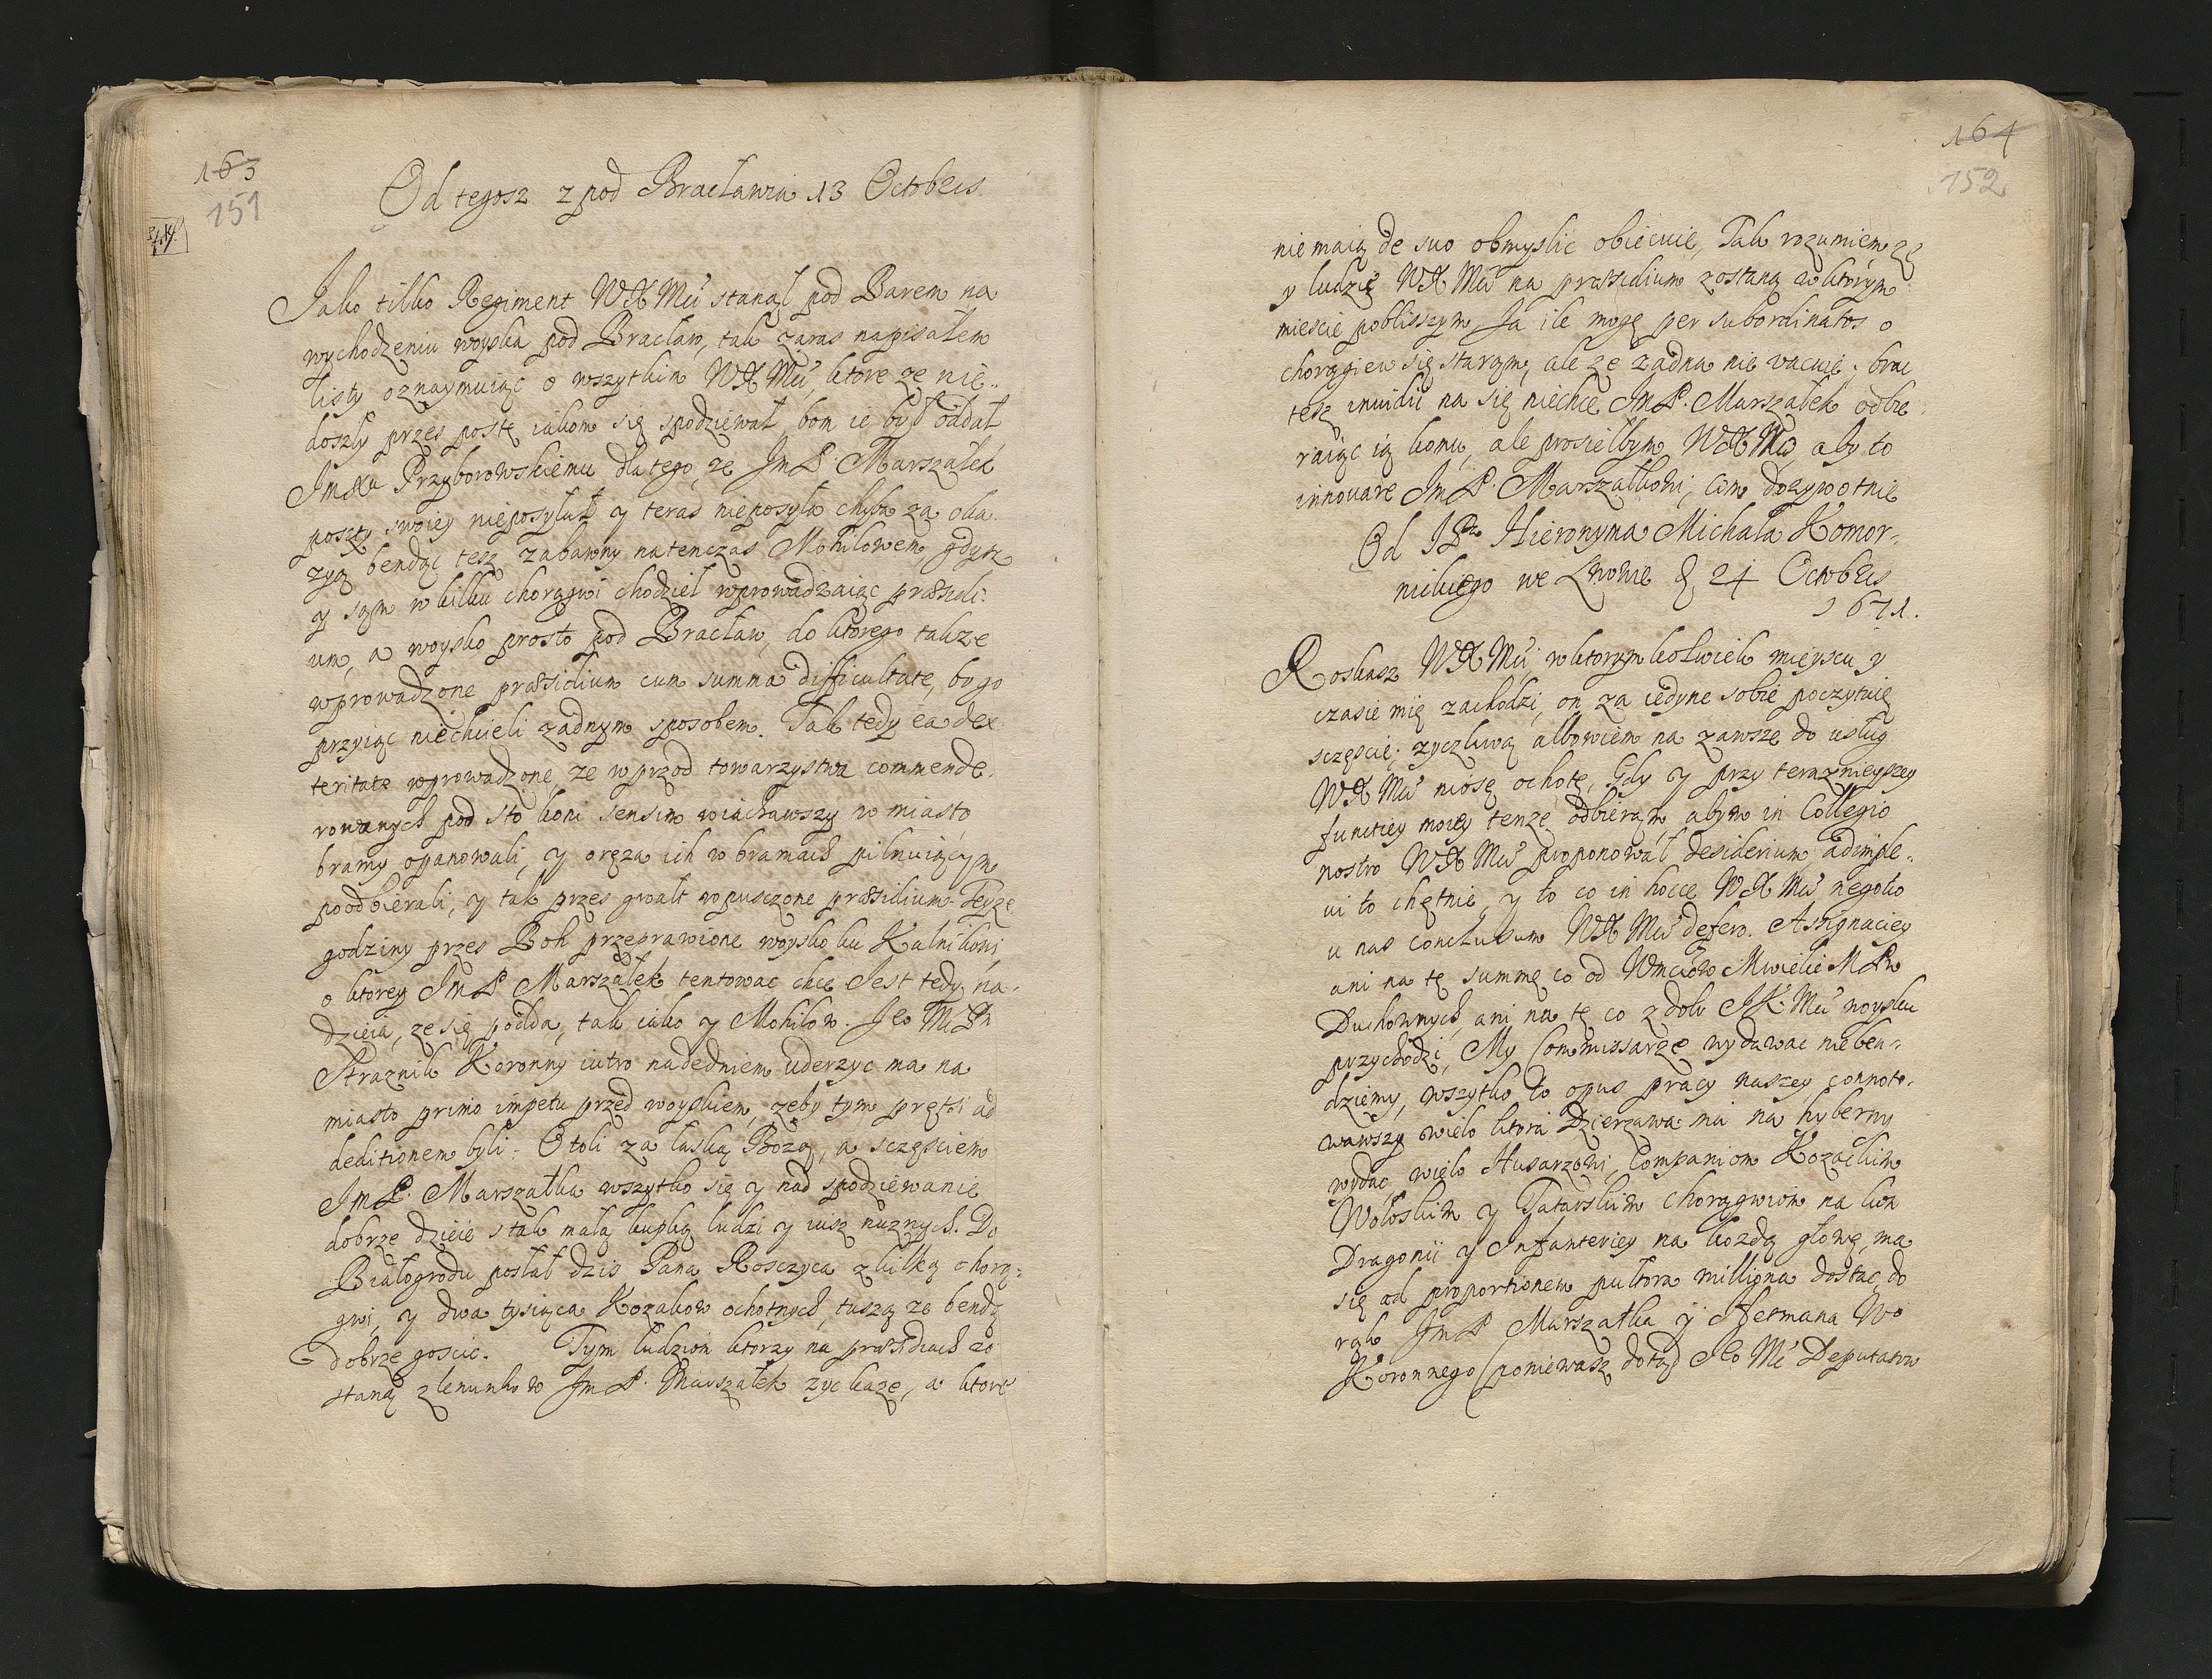 163
151
Od tegosz z pod Bracławia 13 Octobris.
Jako tilko Regiment WXMci stanął pod Barem na
wychodzeniu woyska pod Bracław, tak zaras napisałem
listy oznaymuiąc o wszytkim WXMci, ktore ze nie-
doszły przes posztę iakom się spodziewał, bom ie był oddał
Przyborowskiemu dla tego, ze JmP. Marszałek
poszty swoiey nieposyłał y teras nieposyła chyba za oka-
zyą bendąc tesz zabawny natenczas Mohilowem gdysz
y sam w kilku chorągwi chodził wprowadzaiąc præsidi-
um, a woysko prosto pod Bracław, do ktorego takze
wprowadzone præsidium cum summa difficultate, bo go
przyiąc niechcieli zadnym sposobem. Tak tedy ea dex-
teritate wprowadzone, ze wprzod towarzystwa commende-
rowanych pod sto koni sensim wiachawszy w miasto
bramy opanowali, y oręza ich w bramach pilnuiącym
poodbierali, y tak przes gwałt wpusczone præsidium. Teyze
godziny przes Boh przeprawione woysko ku Kalnikowi,
o ktorey JmP Marszałek tentowac chce Jest tedy na-
dzieia, ze się podda, tak iako y Mohilow. Jeo MP
Straznik Koronny iutro nadedniem uderzyc ma na
miasto primo impetu przed woyskiem, zeby tym prętsi ad
deditionem byli. Otoli za łaską Bozą, a sczęsciem
JmP. Marszałka wszytko się y nad spodziewanie
dobrze dzieie s tak małą kupką ludzi y iusz nuznych. Do
Białogrodu posłał dzis Pana Rosczyca z kilką chorą-
gwi, y dwa tysiąca Kozakow ochotnych, tuszą ze bendą
dobrze goscic. Tym ludziom ktorzy na præsidiach zo-
staną z lenunkow JmP. Marszałek zyc kaze, a ktore
164
152
nie maią de suo obmyslic obiecuie, Tak rozumiem ze
y ludzie WXMci na præsidium zostaną w ktorym
miescie pobliszszym Ja ile mogę per subordinatos o
chorągiew się staram, ale ze zadna nie vacuie; brac
tesz invidii na się niechce JmP. Marszałek odbie-
raiąc ią komu, ale prosiełbym WXMci aby to
innovare JmP. Marszałkowi, com dozywotnie
Od JP Hieronyma Michała Komor-
nickiego we Lwowie d 24 Octobris
1671.
Roskasz WXMci, w ktorymkolwiek mieyscu y
czasie mię zachodzi, on za iedyne sobie poczytuię
sczęscie; zyczliwą albowiem na zawsze do usług
WXMci niosę ochotę, Gdy y przy teraznieyszey
functiey moiey tenze odbieram, abym in Collegio
nostro WXMci proponował desiderium, adimple-
vi to chętnie, y to co in hocce WXMci negotio
u nas conclusum WXMci defero. Assignaciey
ani na tę summę co od
Duchownych, ani na tę co z dobr JKMci woysku
przychodzi, My Commissarze wydawac nieben-
dziemy, wszytko to opus pracy naszey connoto-
wawszy wielo ktora Dzierzawa ma na hyberny
wydac wielo Husarzowi, Companiom Kozackim
Wołoskim y Tatarskim chorągwiom na kon
Dragonii y Infanteriey na kozdą głowę, ma
się ad proportionem pułtora milliona dostac, do
rąk JmP Marszałka y Hetmana Wo
Koronnego (poniewasz dotąd Ich Mci Deputatow